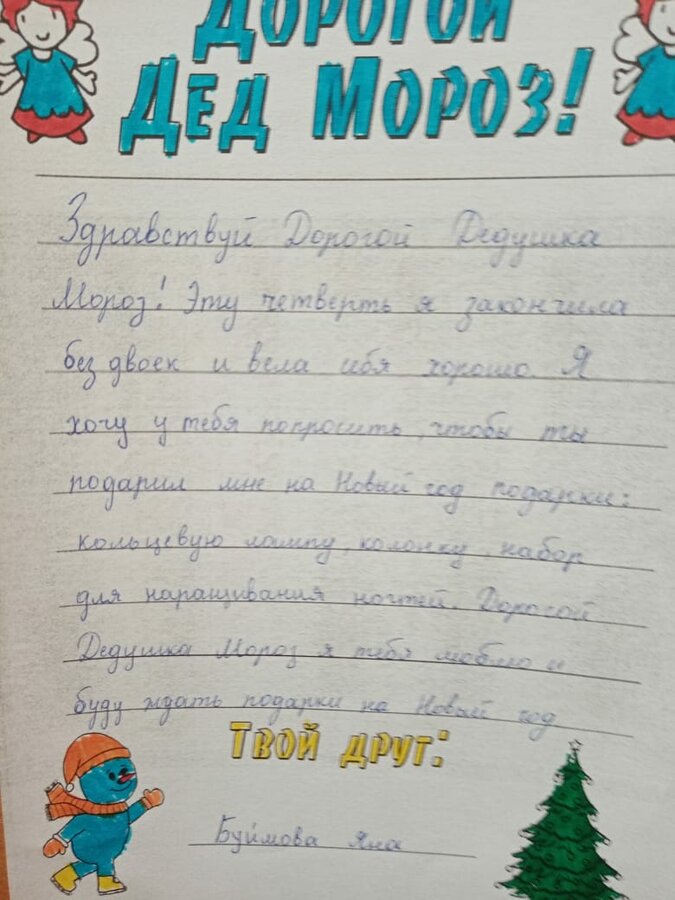 ДОРОГОЙ
ДЕД МОРОЗ!
Здравствуй Дорогой Дедушка
Мороз! Эту четверть я закончила
без двоек и вела себя хорошо. Я
хочу у тебя попросить, чтобы ты
подарил мне на Новый год подарки:
кольцевую лампу, колонку, набор
для наращивания ногтей. Дорогой
Дедушка Мороз я тебя люблю и
буду ждать подарки на Новый год
ТВОЙ ДРУГ:
Буймова Яна